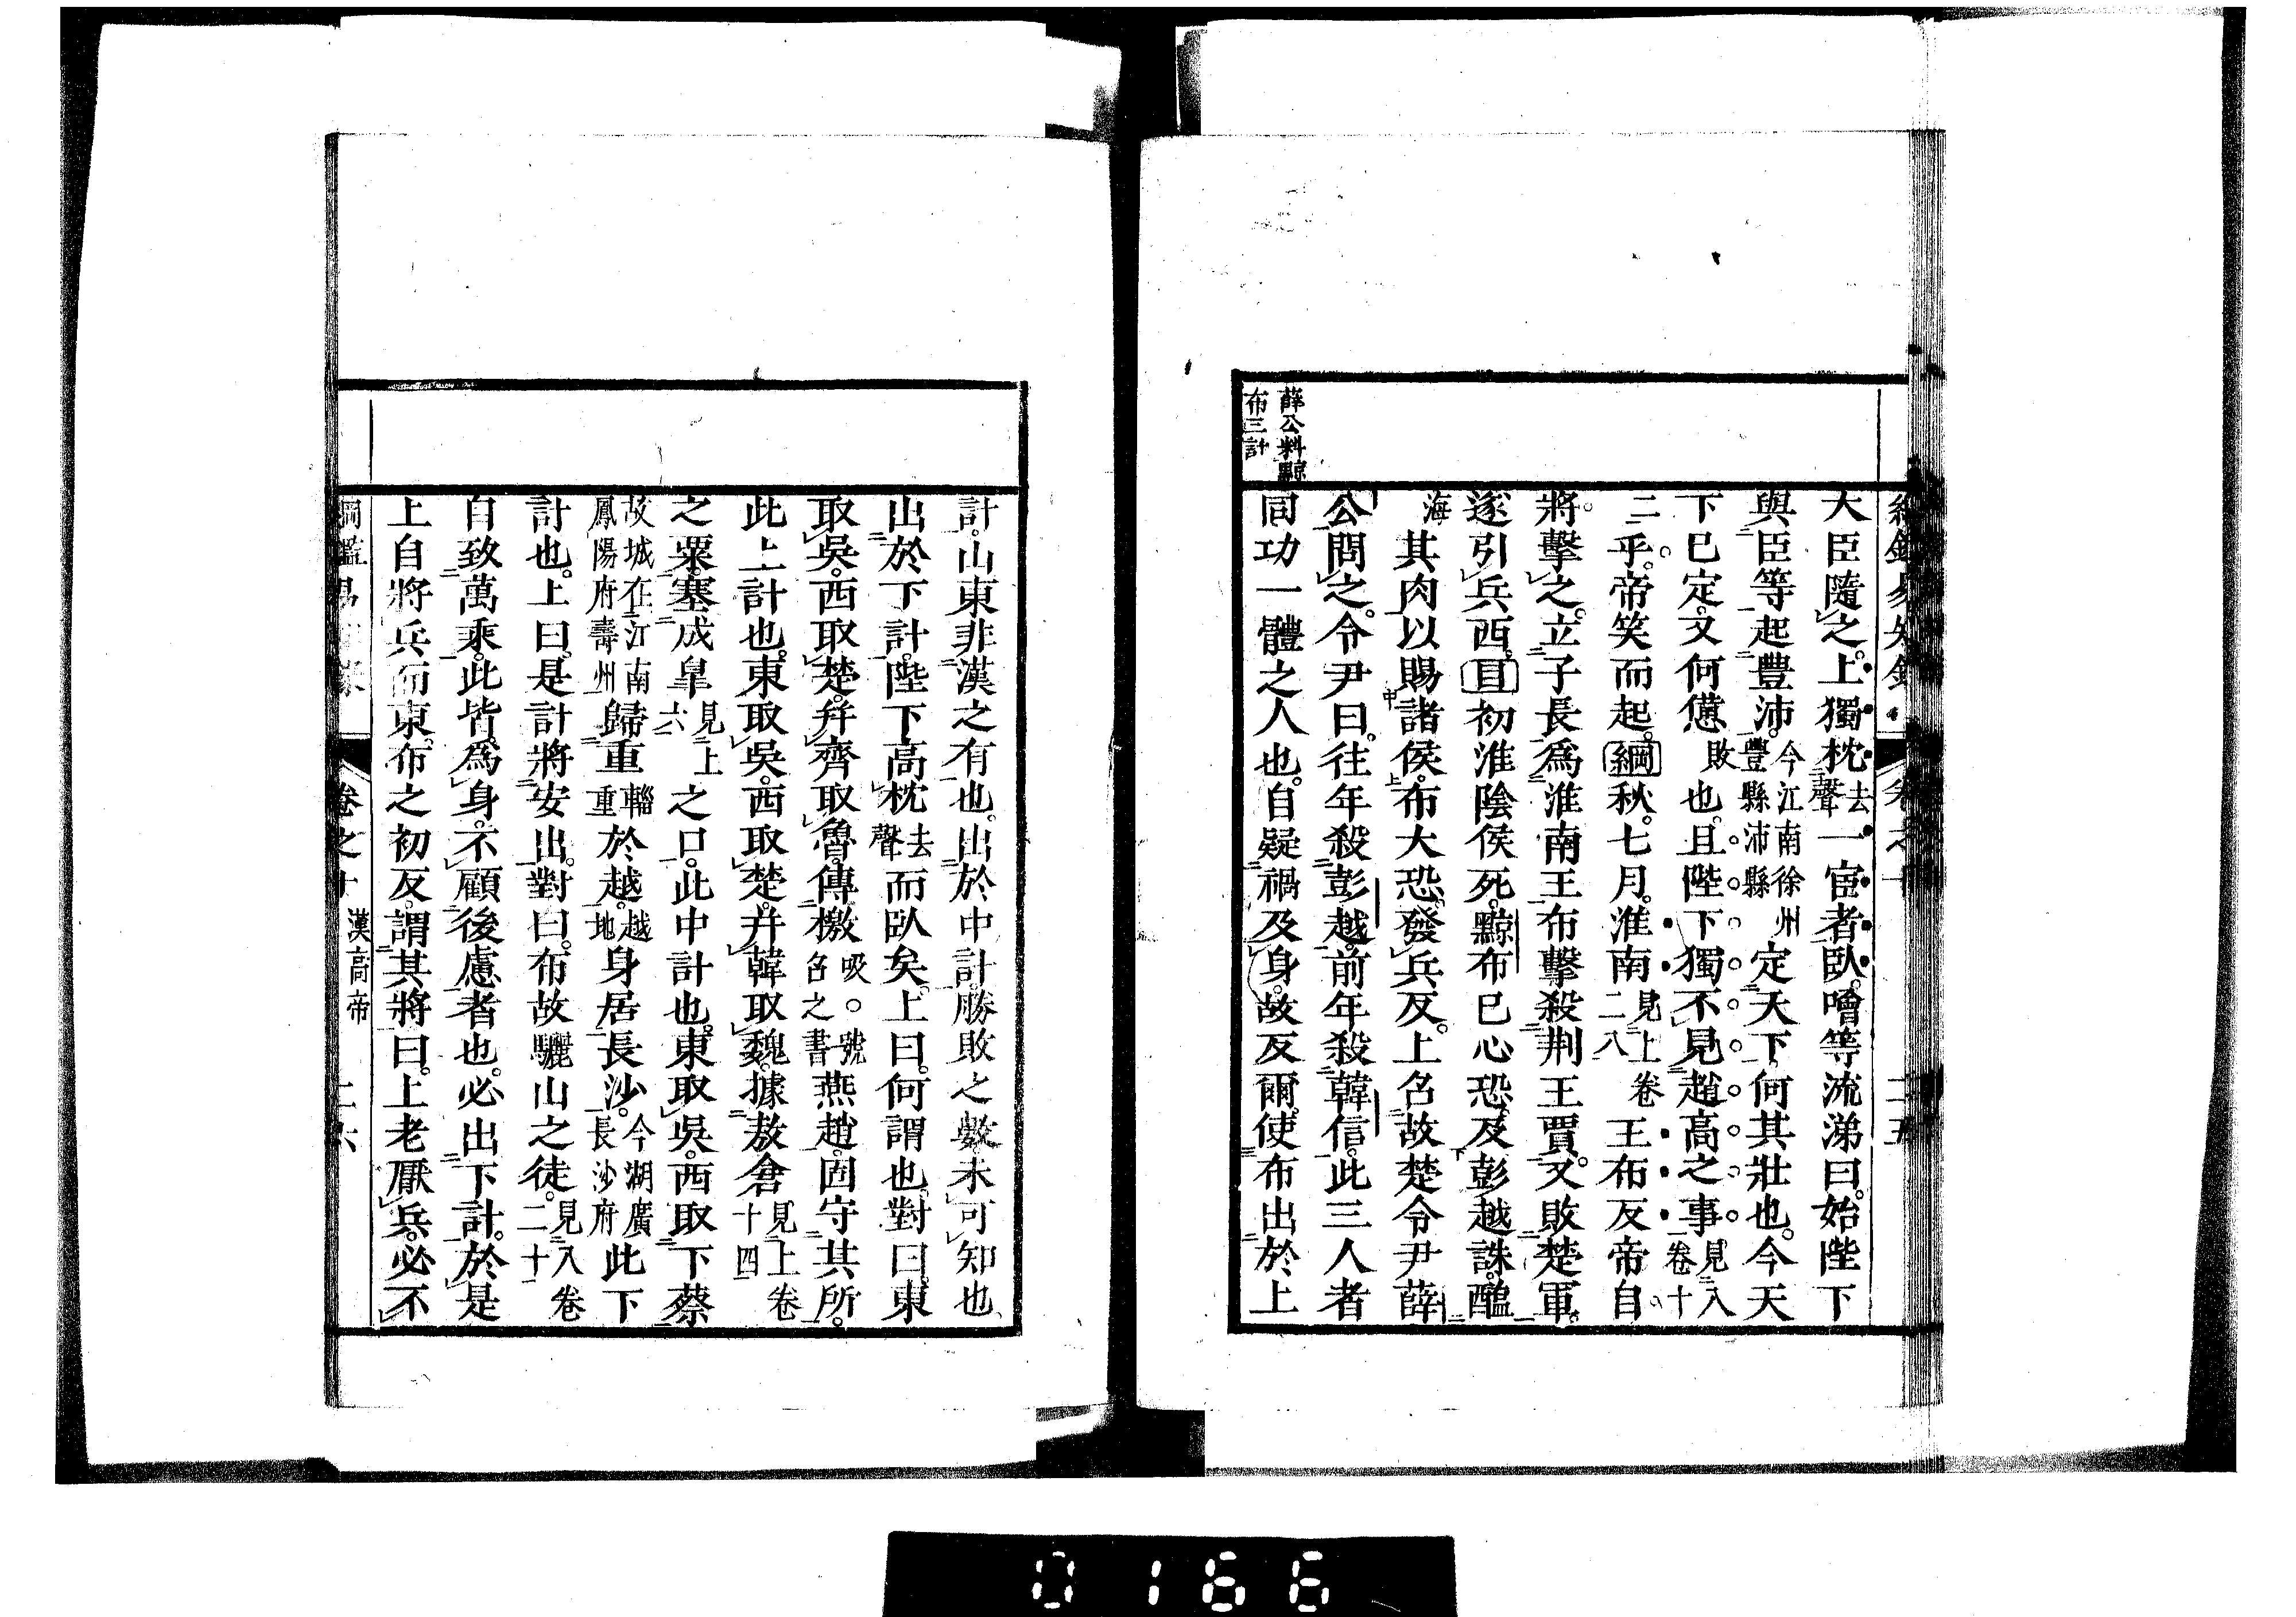 大臣隨之。上獨枕去聲一宦者臥。噲等流涕曰。始陛下
與臣等起豐沛。今江南徐州豐縣沛縣定天下。何其壯也。今天
下已定。又何憊敗也。且陛下獨不見趙高之事見八卷十二
乎。帝笑而起。綱秋。七月。淮南見上卷二八王布反。帝自
將擊之。立子長爲淮南王。布擊殺荆王賈。又敗楚軍。
遂引兵西。目初淮陰侯死。黥布已心恐。及彭越誅。醢海
其肉以賜諸侯。布大恐。發兵反。上召故楚令尹薛
公問之。令尹曰。往年殺彭越。前年殺韓信。此三人者
同功一體之人也。自疑禍及身。故反爾。使布出於上
薛公料黥
布三計
計。山東非漢之有也。出於中計。勝敗之數未可知也
出於下計。陛下高枕去聲而臥矣。上曰。何謂也。對曰。東
取吳。西取楚。幷齊取魯。傳檄吸。號召之書燕趙。固守其所。
此上計也。東取吳。西取楚。幷韓取魏。據敖倉見上卷十四
之粟。塞成皐見上六之口。此中計也。東取吳。西取下蔡
故城在江南鳳陽府壽州歸重輜重於越。越地身居長沙。今湖廣長沙府此下
計也。上曰。是計將安出。對曰。布故驪山之徒。見八卷二十
自致萬乘。此皆爲身。不顧後慮者也。必出下計。於是
上自將兵而東。布之初反。謂其將曰。上老厭兵。必不
卷之十 漢高帝 二六
0166